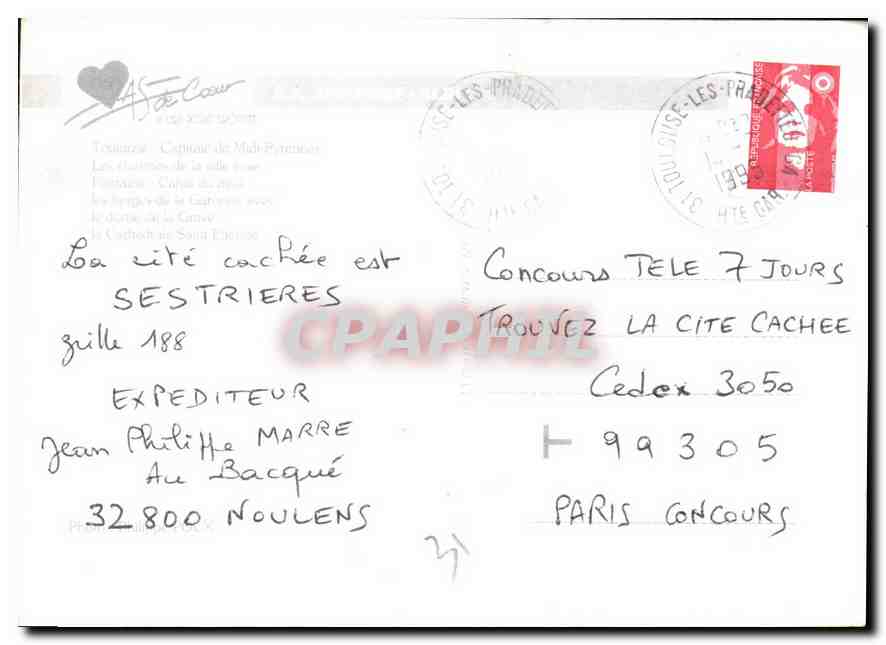 As de Cœur
Toulouse - Capitale de Midi-Pyrénées
Les charmes de la ville rose
Fontaine - Canal du midi
les berges de la Garonne avec
le dôme de la Grave
la Cathédrale Saint Etienne
La cité cachée est
SESTRIERES
grille 188
EXPEDITEUR
Jean Philippe MARRE
Au Bacqué
32800 NOULENS
31 TOULOUSE-LES-PRADETTES CA
1993
HTE GAR
REPUBLIQUE FRANÇAISE
LA POSTE
Concours TELE 7 JOURS
TROUVEZ LA CITE CACHEE
Cedex 3050
T 99305
PARIS CONCOURS
31
CPAPHIL